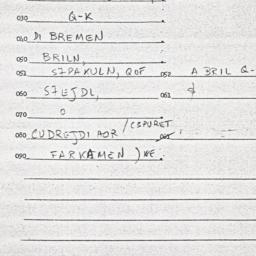 030 G-K
040 DI BREMEN
050 BRILN,
051 SZPAKULN, QOF 052 A BRIL G-
060 STEJDL, 061
070 0
080 CUDREJDI AOR /CSPURET,
090 FARKAMEN